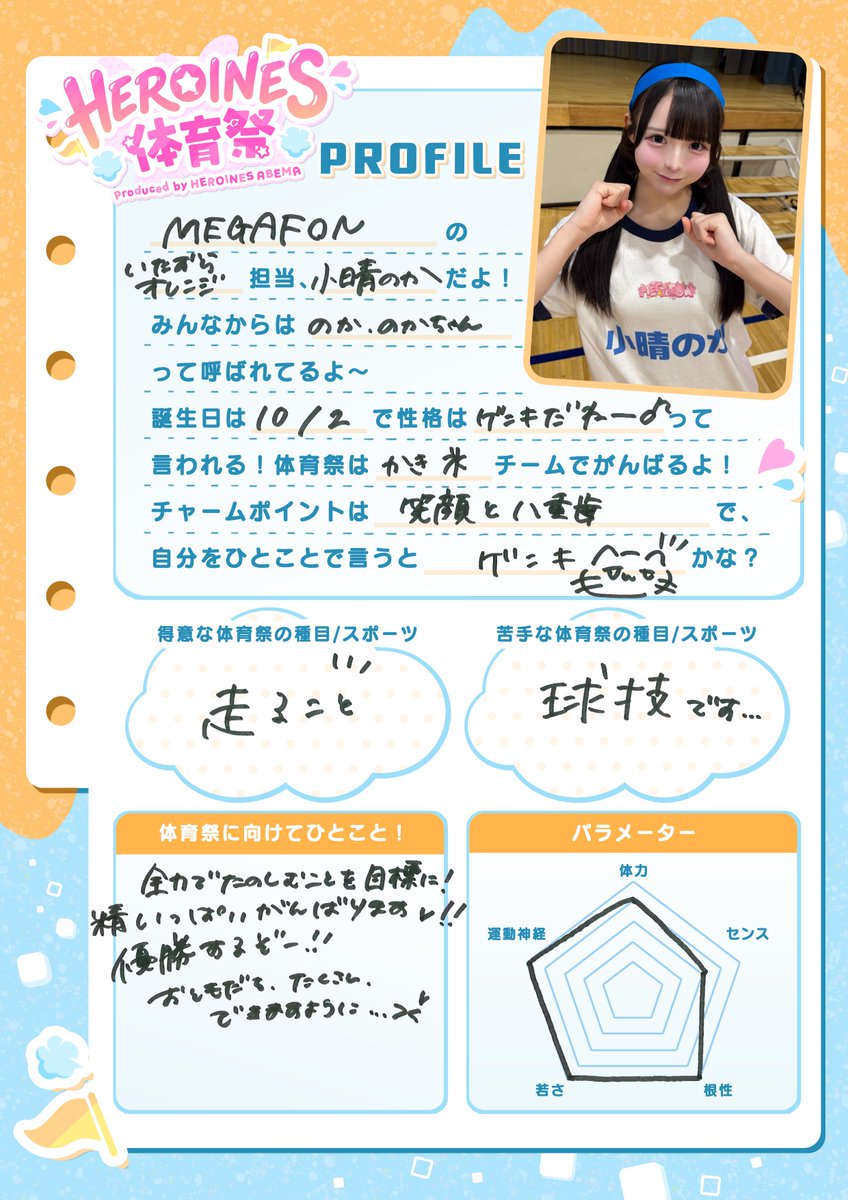 HEROINES
体育祭
Produced by HEROINES ABEMA
PROFILE
MEGAFONの
いたずらオレンジ担当、小晴のかだよ！
みんなからはのか、のかちゃん
って呼ばれてるよ〜
誕生日は10/2で性格はゲンキだねー♪って
言われる！体育祭はかき氷チームでがんばるよ！
チャームポイントは笑顔と八重歯で、
自分をひとことで言うとゲンキかな？
小晴のか
得意な体育祭の種目/スポーツ
走ること
苦手な体育祭の種目/スポーツ
球技です...
体育祭に向けてひとこと！
全力でたのしむことを目標に！
精いっぱいがんばります!!
優勝するぞー!!
おともだち、たくさん、
できますように...
パラメーター
体力
運動神経
センス
若さ
根性